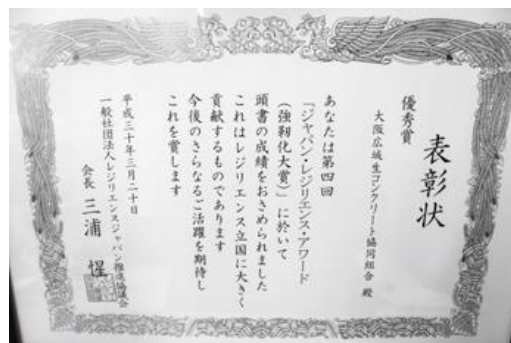 表彰状
優秀賞
大阪広域生コンクリート協同組合 殿
あなたは第四回
「ジャパン・レジリエンス・アワード
(強靭化大賞)」に於いて
頭書の成績をおさめられました
これはレジリエンス立国に大きく
貢献するものであります
今後のさらなるご活躍を期待し
これを賞します
平成三十年三月二十日
一般社団法人レジリエンスジャパン推進協議会
会長 三浦 惺